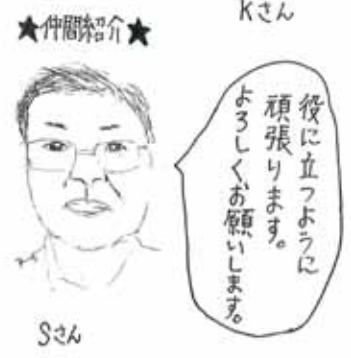 Kさん
★仲間紹介★
役に立つように
頑張ります。
よろしくお願いします。
Sさん